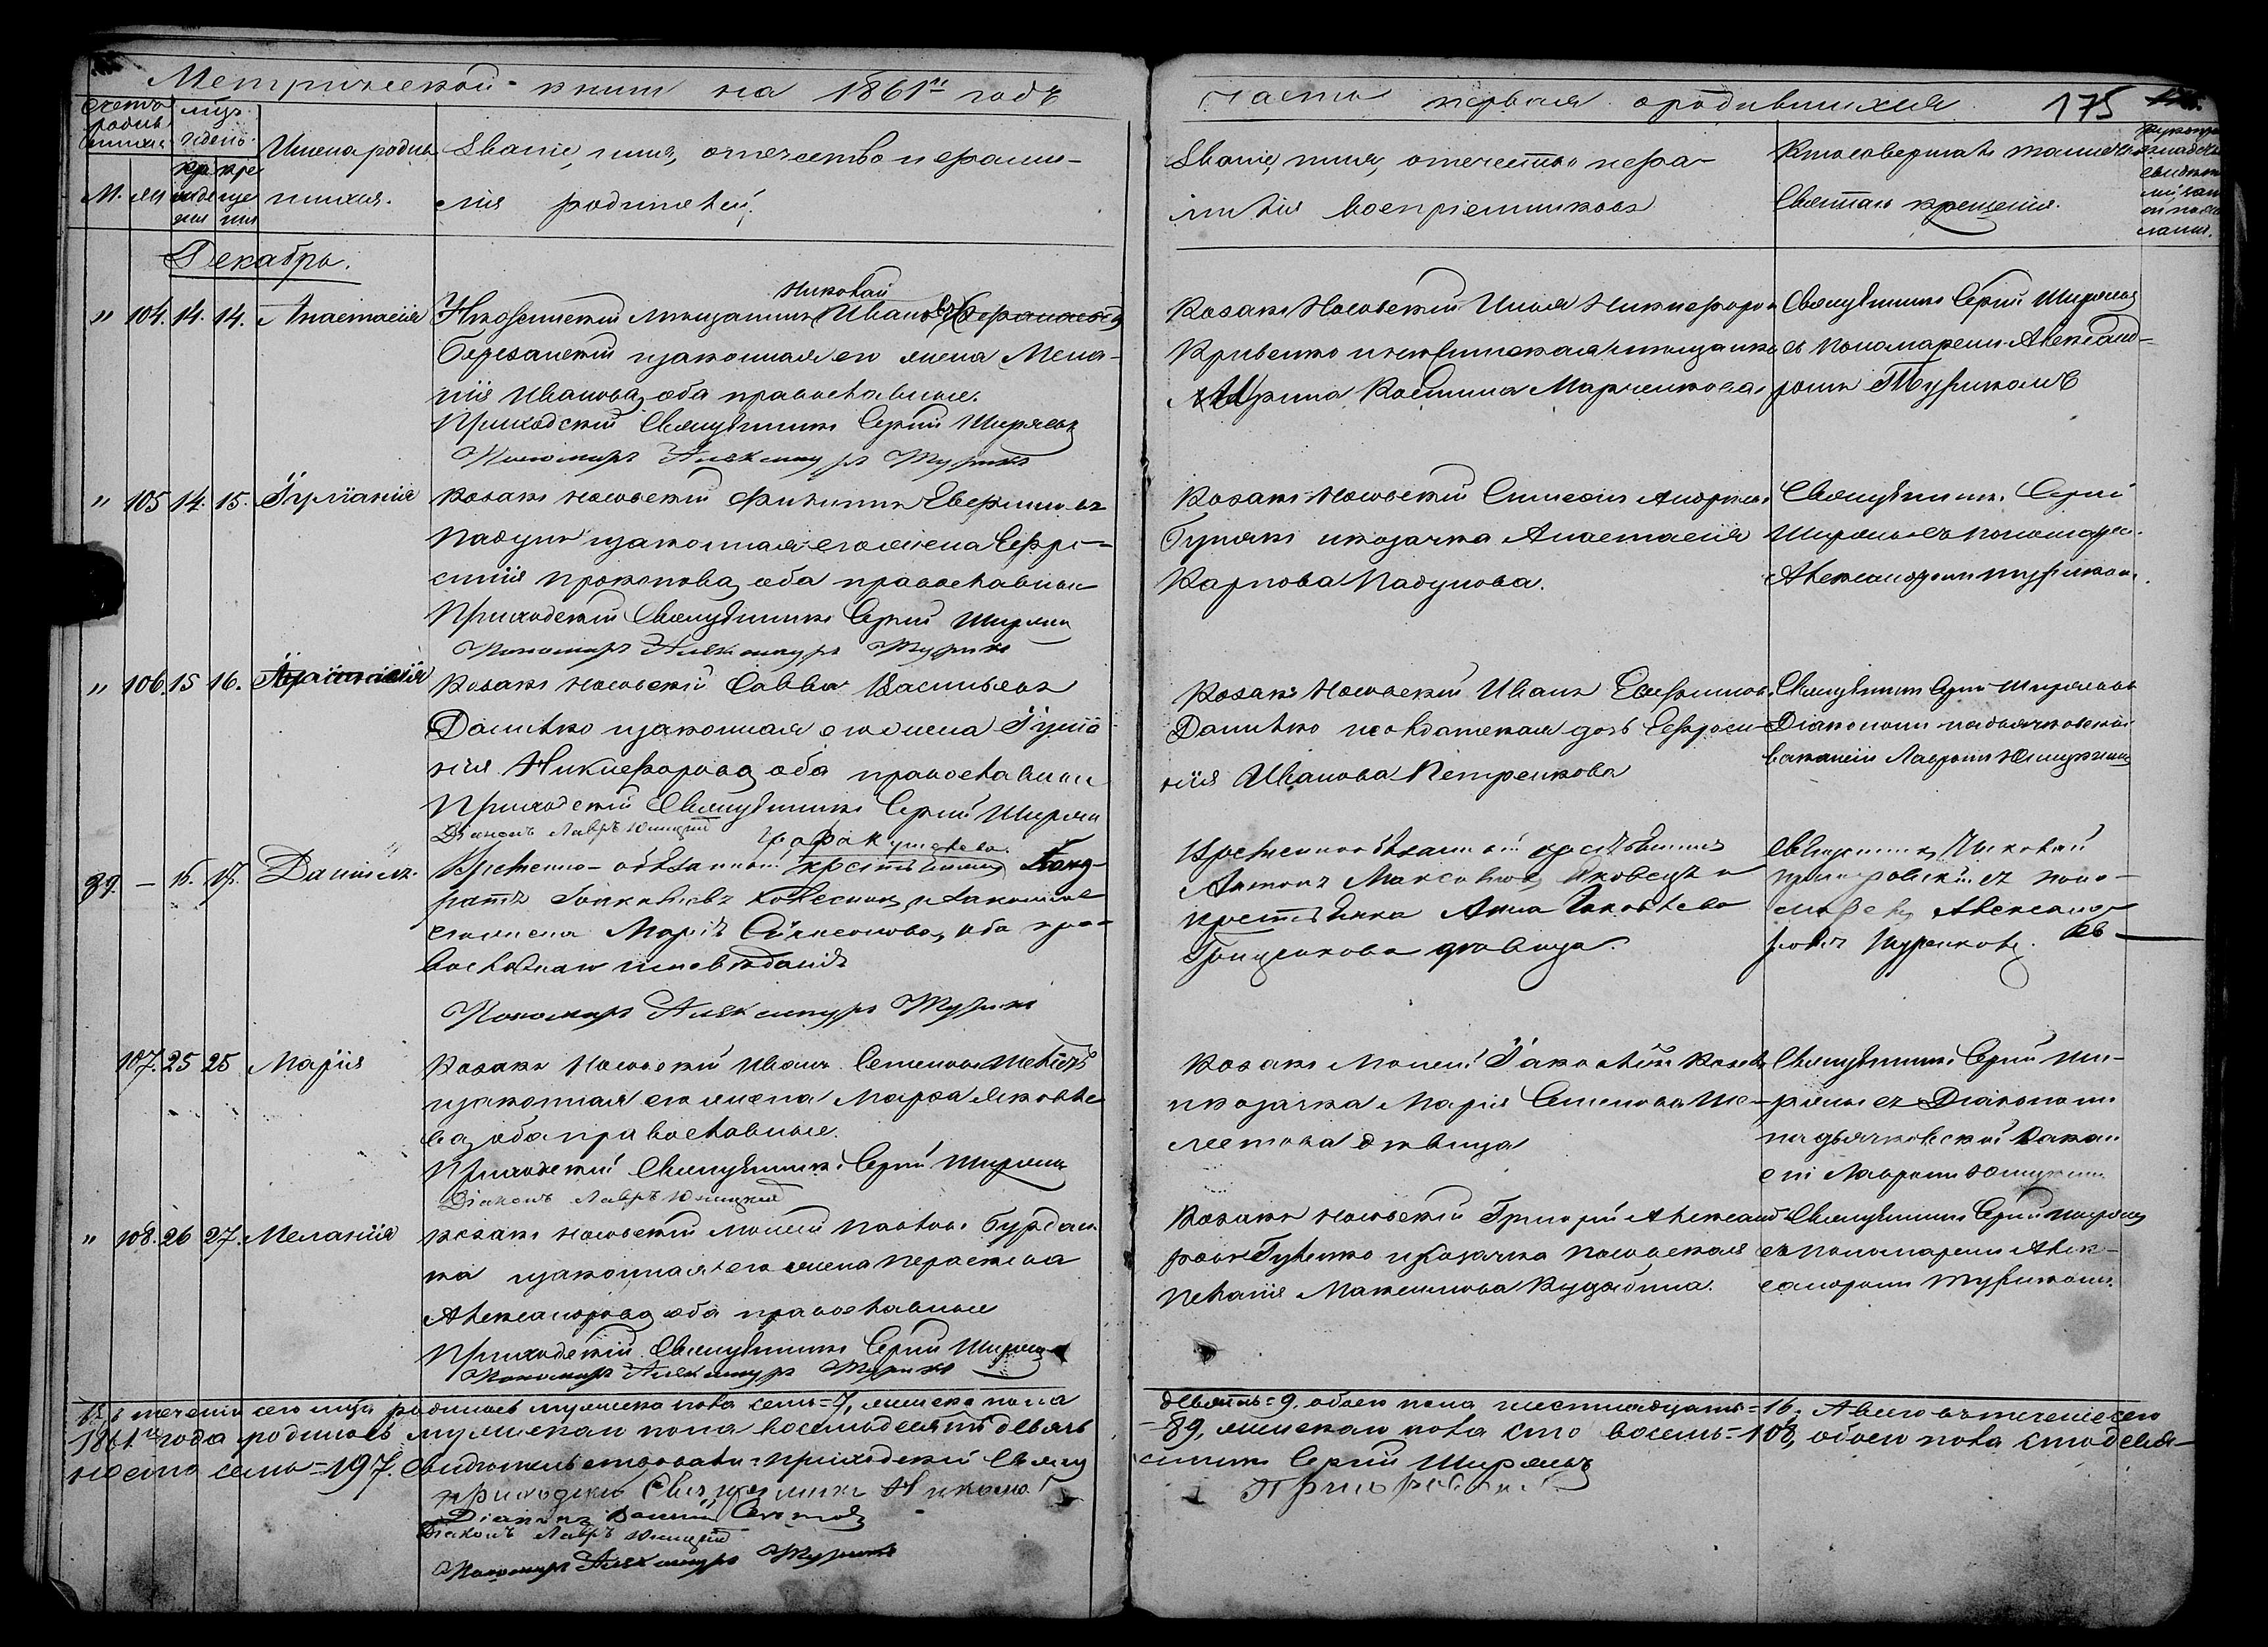 Метрической книги на 1861й годъ
часть первая о родившихся 175
Счетъ родив шихся
М. Ж
мцъ и день
рождения крещения
Имена родив шихся.
Званіе, имя, отечество и фами-
лія родителей.
Званіе, имя, отечество и фа-
милія воспріемниковъ
Кто совершалъ таинство
Святаго крещенія.
Декабрь.
" 104. 14. 14. Анастасія
Николай
Нѣжинскій мещанинъ Иван
Березанскій и законная его жена Мела-
нія Иванова, оба православные.
Приходскій Священникъ Сергій Ширяевъ
Пономарь Александръ Турикъ
Козакъ Носовскій Илья Никифоров
Кривенко и нежинская мещанка
Ирина Костина Марченкова
Священникъ Сергій Ширяевъ
съ пономаремъ Александ-
ромъ Турикомъ
" 105 14. 15. Іуліанія
Козакъ Носовскій Филиппъ Евфимовъ
Падунъ и законная его жена Евфро-
синія Прокопова, оба православные
Приходскій Священникъ Сергій Ширяевъ
Пономарь Александръ Турикъ
Козакъ Носовскій Симеонъ Андреевъ
Бунякъ и козачка Анастасія
Карпова Падунова.
Священникъ Сергій
Ширяевъ съ пономаремъ
Александромъ Турикомъ.
" 106. 15 16.
Козакъ Носовскій Савва Васильевъ
Данилко и законная его жена Іуліа-
нія Никифорова, оба православные
Приходскій Священникъ Сергій Ширяевъ
Діаконъ Лавръ Юницкій
Козакъ Носовскій Иванъ Евфимовъ
Данилко и солдатская дочь Евфроси-
нія Иванова Петренкова
Священникъ Сергій Ширяевъ съ
Діакономъ на дьячковской
вакансіи Лавромъ Юницкимъ
89. — 16. 17. Даніилъ.
графа Кушелева
Временно-обязанный крестьянинъ Конд-
ратъ Колесникъ и законная
его жена Марія Сѵмеонова, оба пра-
вославнаго исповѣданія
Пономарь Александръ Турикъ
Временнообязанный крестьянинъ
Антонъ Максимовъ Яковецъ и
крестьянка Анна Яковлева
Грищенкова дѣвица.
Священникъ Николай
Приоровскій съ поно-
маремъ Александ-
ромъ Туриковъ.
107. 25 25 Марія
Козакъ Носовскій Иванъ Семеновъ Шелестъ
и законная его жена Марфа Яковле-
ва, оба православные.
Приходскій Священникъ Сергій Ширяевъ
Діаконъ Лавръ Юницкій
Козакъ Моисей Іаковлевъ
и козачка Марія Семенова Ше-
лестова дѣвица
Священникъ Сергій Ши-
ряевъ съ Діакономъ
на дьячковской вакан-
сіи Лавромъ Юницкимъ
" 108. 26 27. Меланія
Козакъ Носовскій Моисей Павловъ Бурдас
ка и законная его жена Параскева
Александрова, оба православные
Приходскій Священникъ Сергій Ширяевъ
Пономарь Александръ Турикъ
Козакъ Носовскій Григорій Александ
ровъ Гуленко и Козачка Носовская
Пелагія Максимова
Священникъ Сергій Ширяевъ
съ пономаремъ Алек-
сандромъ Турикомъ.
Въ теченіи сего мца родилось мужеска пола семь=7, женска пола
девять=9. обоего пола шестнадцать=16; А всего въ теченіе сего
1861го года родилось мужескаго пола восемьдесятъ девять
=89, женскаго пола сто восемь=108, обоего пола сто девя-
носто семь=197. Свидѣтельствовали: приходскій Свящ
енникъ Сергій Ширяевъ
Приходскій Священникъ Николай Приоровскій
Діаконъ
Діаконъ Лавръ Юницкій
Пономарь Александръ Турикъ